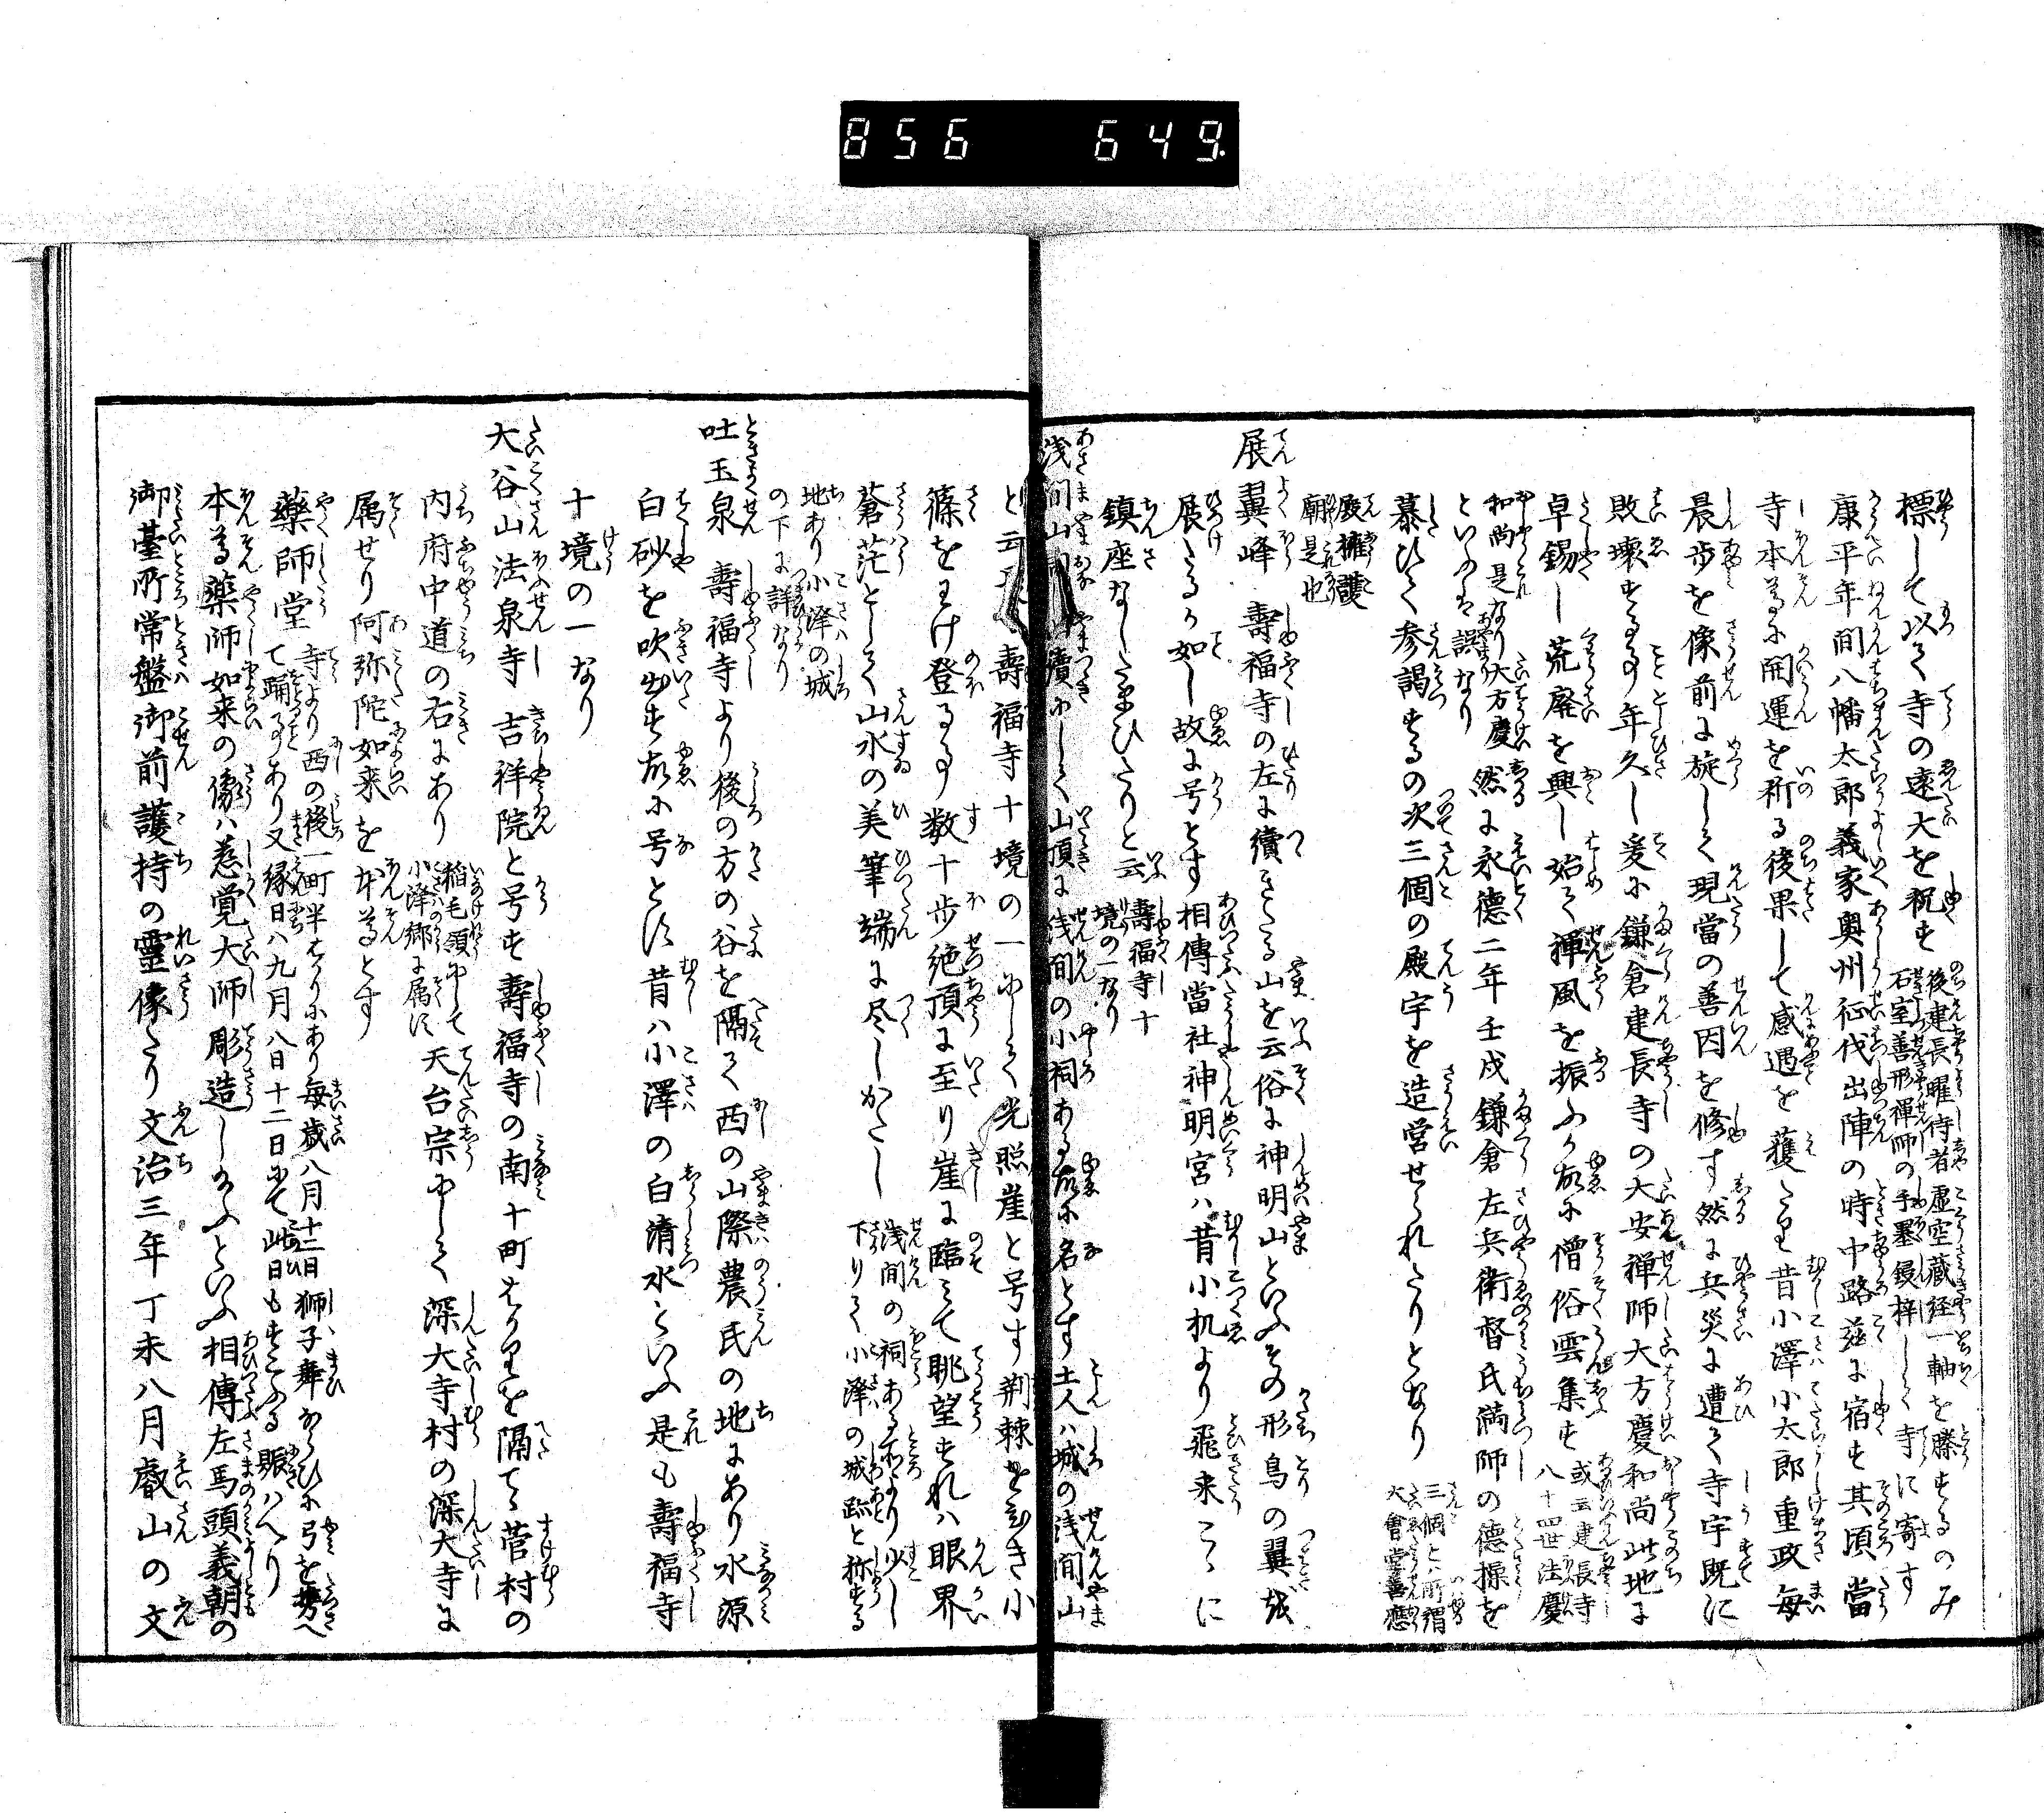 856 649
標して以て寺の遠大を祝す 後建長曜侍者虚空蔵経一軸を謄するのみ
石室善形禅師の手墨鏝梓して寺に寄す
康平年間八幡太郎義家奥州征伐出陣の時中路茲に宿す其頃當
寺本尊に開運を祈る後果して感遇を獲たり昔小澤小太郎重政毎
晨歩を像前に旋して現當の善因を修す然に兵災に遭て寺宇既に
敗壊する事年久し爰に鎌倉建長寺の大安禅師大方慶和尚此地に
卓錫し荒廃を興し始て禅風を振ふ故に僧俗雲集す 或云建長寺
八十四世法慶
和尚是なり大方慶
といふは誤なり
然に永徳二年壬戌鎌倉左兵衛督氏満師の徳操を
慕ひて参謁するの次三個の殿宇を造営せられたりとなり 三個とハ所謂
大會堂善應
殿擁護
廟是也
展翼峰 壽福寺の左に續きたる山を云俗に神明山といふその形鳥の翼を
展たるか如し故に号とす相傳當社神明宮ハ昔小机より飛来こゝに
鎮座なしたまひたりと云 壽福寺十
境の一なり
浅間山 續にして山頂に浅間の小祠ある故に名とす土人ハ城の浅間山
と云 壽福寺十境の一にして光照崖と号す荊棘をひき小
篠をわけ登る事数十歩絶頂に至り崖に臨て眺望すれハ眼界
蒼茫として山水の美筆端に尽しかたし 浅間の祠ある所より少し
下りて小澤の城跡と称する
地あり小澤の城
の下に詳なり
吐玉泉 壽福寺より後の方の谷を隔て西の山際農民の地にあり水源
白砂を吹出す故に号とす昔ハ小澤の白清水といふ是も壽福寺
十境の一なり
大谷山法泉寺 吉祥院と号す壽福寺の南十町はかりを隔てゝ菅村の
内府中道の右にあり 稲毛領にして
小澤郷に属す
天台宗にして深大寺村の深大寺に
属せり阿弥陀如来を本尊とす
薬師堂 寺より西の後一町半はかりにあり毎歳八月十二日獅子舞ならひに弓を携へ
て踊る事あり又縁日ハ九月八日十二日にて此日もすこふる賑ハへり
本尊薬師如来の像ハ慈覚大師彫造し給ふといふ相傳左馬頭義朝の
御臺所常盤御前護持の霊像たり文治三年丁未八月叡山の文